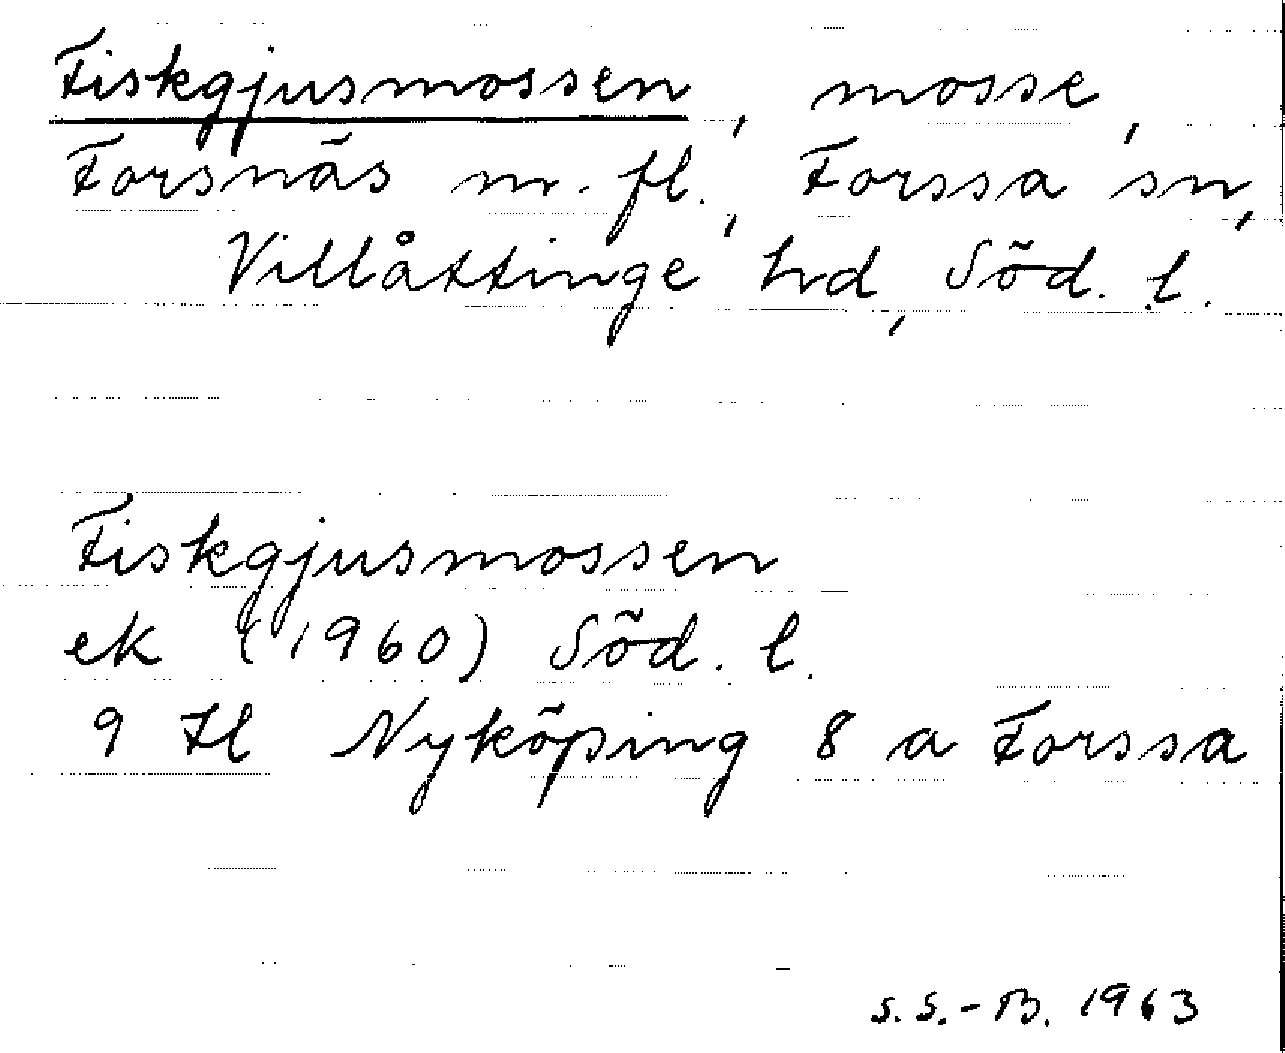 Fiskgjusmossen, mosse,
Forsnäs m. fl., Forssa sn,
Villåttinge hd, Söd. l.
Fiskgjusmossen
ek (1960) Söd. l.
9 H Nyköping 8 a Forssa
S. S.-B. 1963